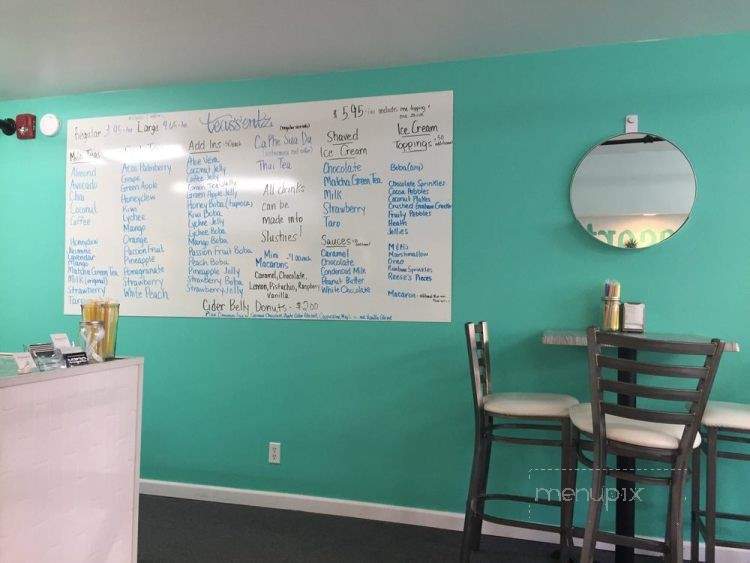 Regular 3.95 Large 4.65
teassentz
$5.95 includes one topping +
Milk Teas
Almond
Avocado
Chai
Coconut
Coffee
Honeydew
Lavender
Mango
Matcha Green Tea
Milk (original)
Strawberry
Taro
Grape
Green Apple
Honeydew
Kiwi
Lychee
Mango
Orange
Passion Fruit
Pineapple
Pomegranate
Strawberry
White Peach
Add Ins
Aloe Vera
Coconut Jelly
Coffee Jelly
Green Tea Jelly
Green Apple Jelly
Honey Boba (tapioca)
Kiwi Boba
Lychee Boba
Lychee Jelly
Mango Boba
Passion Fruit Boba
Peach Boba
Pineapple Jelly
Strawberry Boba
Strawberry Jelly
Ca Phe Sua Da
Thai Tea
All drinks
can be
made into
Slushies!
Mini
Macarons
Caramel, Chocolate,
Lemon, Pistachio, Raspberry
Vanilla
Shaved
Ice Cream
Chocolate
Matcha Green Tea
Milk
Strawberry
Taro
Sauces
Caramel
Chocolate
Condensed Milk
Peanut Butter
White Chocolate
Ice Cream
Toppings
Boba (any)
Chocolate Sprinkles
Cocoa Pebbles
Coconut Flakes
Crushed Graham Cracker
Fruity Pebbles
Heath
Jellies
M&Ms
Marshmallow
Oreo
Rainbow Sprinkles
Reese's Pieces
Macaron
Cider Belly Donuts - $2.00
menupix